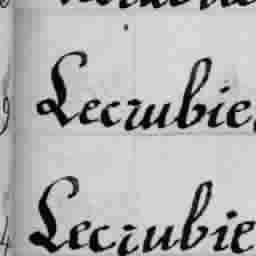 Lecrubie
Lecrubie